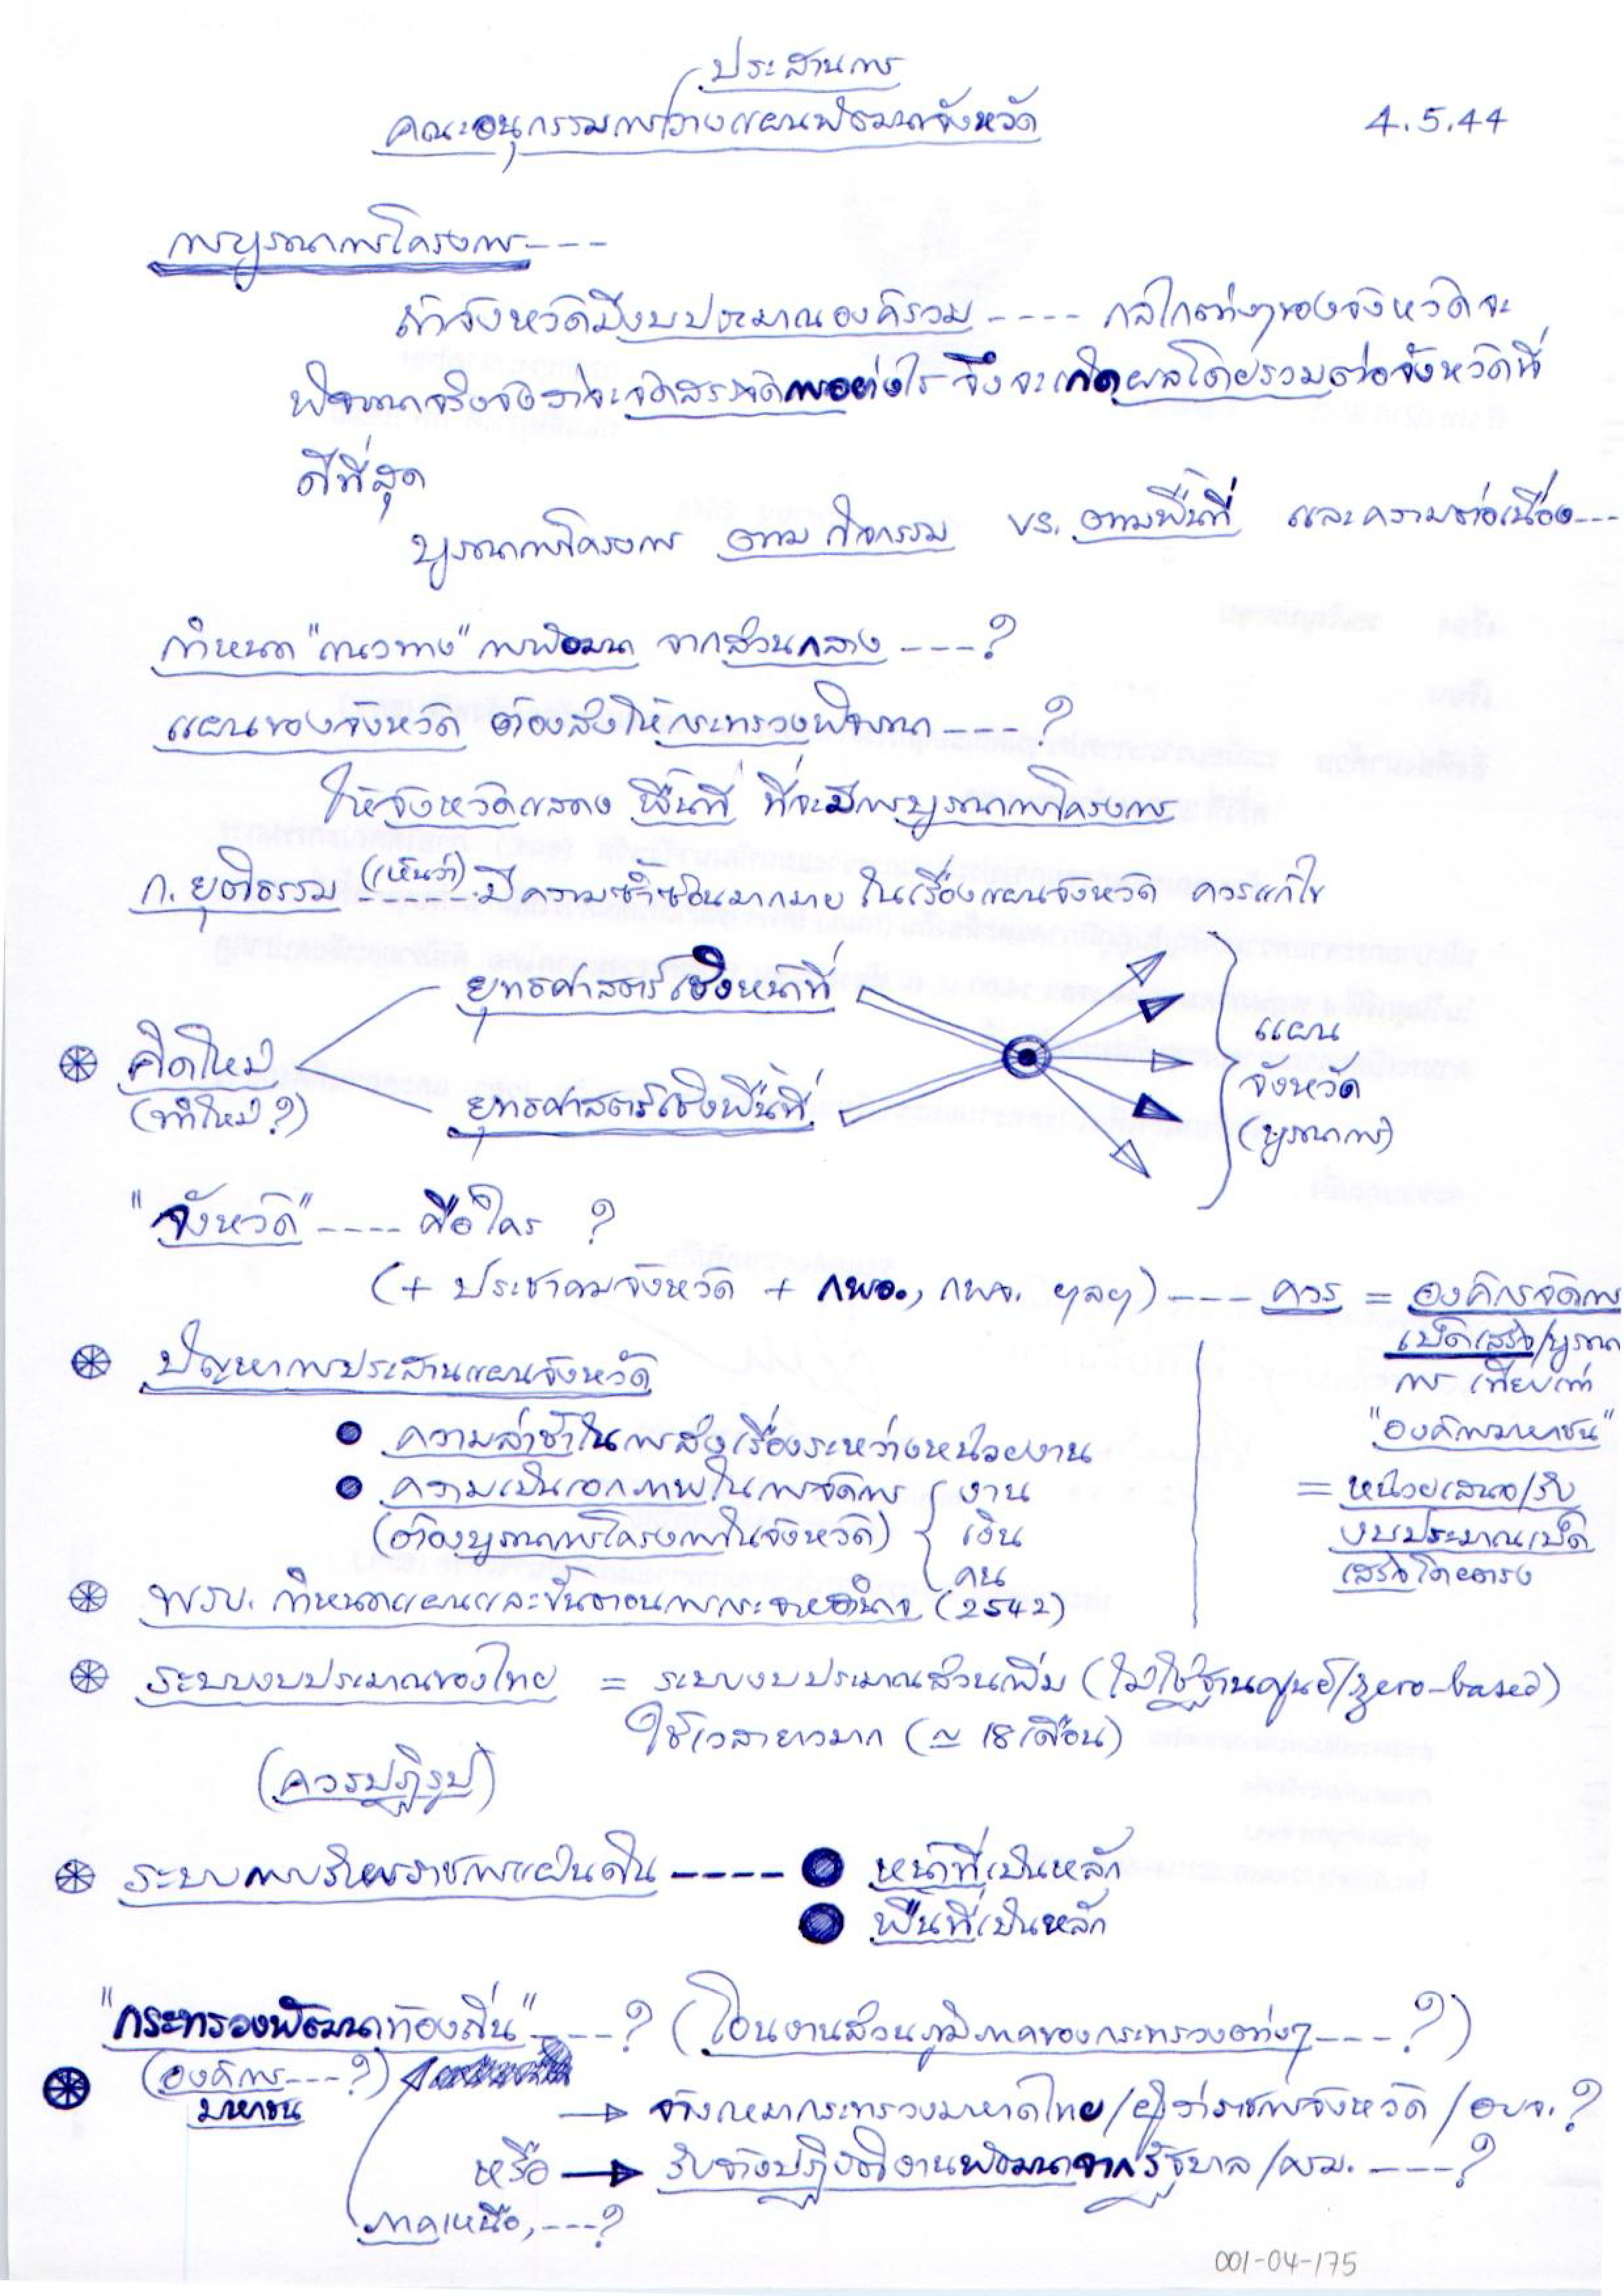 ประสานการ
คณะอนุกรรมการวางแผนพัฒนาจังหวัด
4.5.44
การบูรณาการโครงการ----
ถ้าจังหวัดมีงบประมาณองค์รวม ---- กลไกต่างๆของจังหวัดจะ
พิจารณาจริงจังว่าจะจัดสรร/จัดการอย่างไร จึงจะเกิดผลโดยรวมต่อจังหวัดที่
ดีที่สุด
บูรณาการโครงการ ตามกิจกรรม vs. ตามพื้นที่ และความต่อเนื่อง---
กำหนด "แนวทาง" การพัฒนา จากส่วนกลาง ----?
แผนของจังหวัด ต้องส่งให้กระทรวงพิจารณา ----?
ให้จังหวัดแสดง พื้นที่ ที่จะมีการบูรณาการโครงการ
ก. ยุติธรรม (เห็นว่า) ------ มีความซ้ำซ้อนมากมาย ในเรื่องแผนจังหวัด ควรแก้ไข
ยุทธศาสตร์เชิงหน้าที่
คิดใหม่
(ทำใหม่?)
ยุทธศาสตร์เชิงพื้นที่
แผน
จังหวัด
(บูรณาการ)
"จังหวัด" ---- คือใคร ?
(+ ประชาคมจังหวัด + กพอ., กพจ. ฯลฯ) --- ควร = องค์กรจัดการ
เบ็ดเสร็จ/บูรณา
การ เทียบเท่า
"องค์การมหาชน"
= หน่วยเสนอ/รับ
งบประมาณเบ็ด
เสร็จโดยตรง
ปัญหาการประสานแผนจังหวัด
• ความล่าช้าในการส่งเรื่องระหว่างหน่วยงาน
• ความเป็นเอกภาพในการจัดการ { งาน
(ต้องบูรณาการโครงการในจังหวัด) เงิน
คน
พรบ. กำหนดแผนและขั้นตอนการกระจายอำนาจ (2542)
ระบบงบประมาณของไทย = ระบบงบประมาณส่วนเพิ่ม (ไม่ใช่ฐานศูนย์/zero-based)
ใช้เวลายาวมาก (≃ 18 เดือน)
(ควรปฏิรูป)
ระบบการบริหารราชการแผ่นดิน ---- • หน้าที่เป็นหลัก
• พื้นที่เป็นหลัก
"กระทรวงพัฒนาท้องถิ่น" ----? (โอนงานส่วนภูมิภาคของกระทรวงต่างๆ ----?)
(องค์การ---?)
มหาชน
→ จ้างเหมากระทรวงมหาดไทย/ผู้ว่าราชการจังหวัด/อบจ.?
หรือ → รับจ้างปฏิบัติงานพัฒนาจากรัฐบาล/ครม. ----?
ภาคเหนือ, ---?
001-04-175